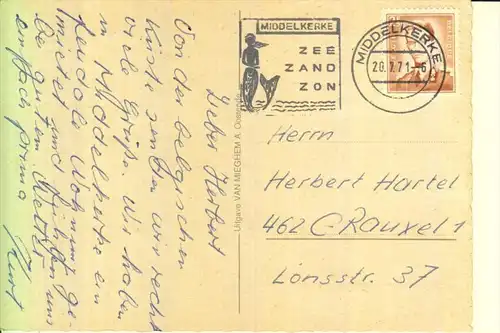 Lieber Herbert
Von der belgischen
Küste senden wir recht
viele Grüße. Wir haben
in Middelkerke ein
Wohnung ge-
mietet und fühlen uns
bei gutem Wetter
einfach prima
Kurt
Uitgave VAN MIEGHEM A. Oostende
MIDDELKERKE
ZEE
ZAND
ZON
MIDDELKERKE
20.7.71-6
Herrn
Herbert Härtel
462 C-Rauxel 1
Lönsstr. 37